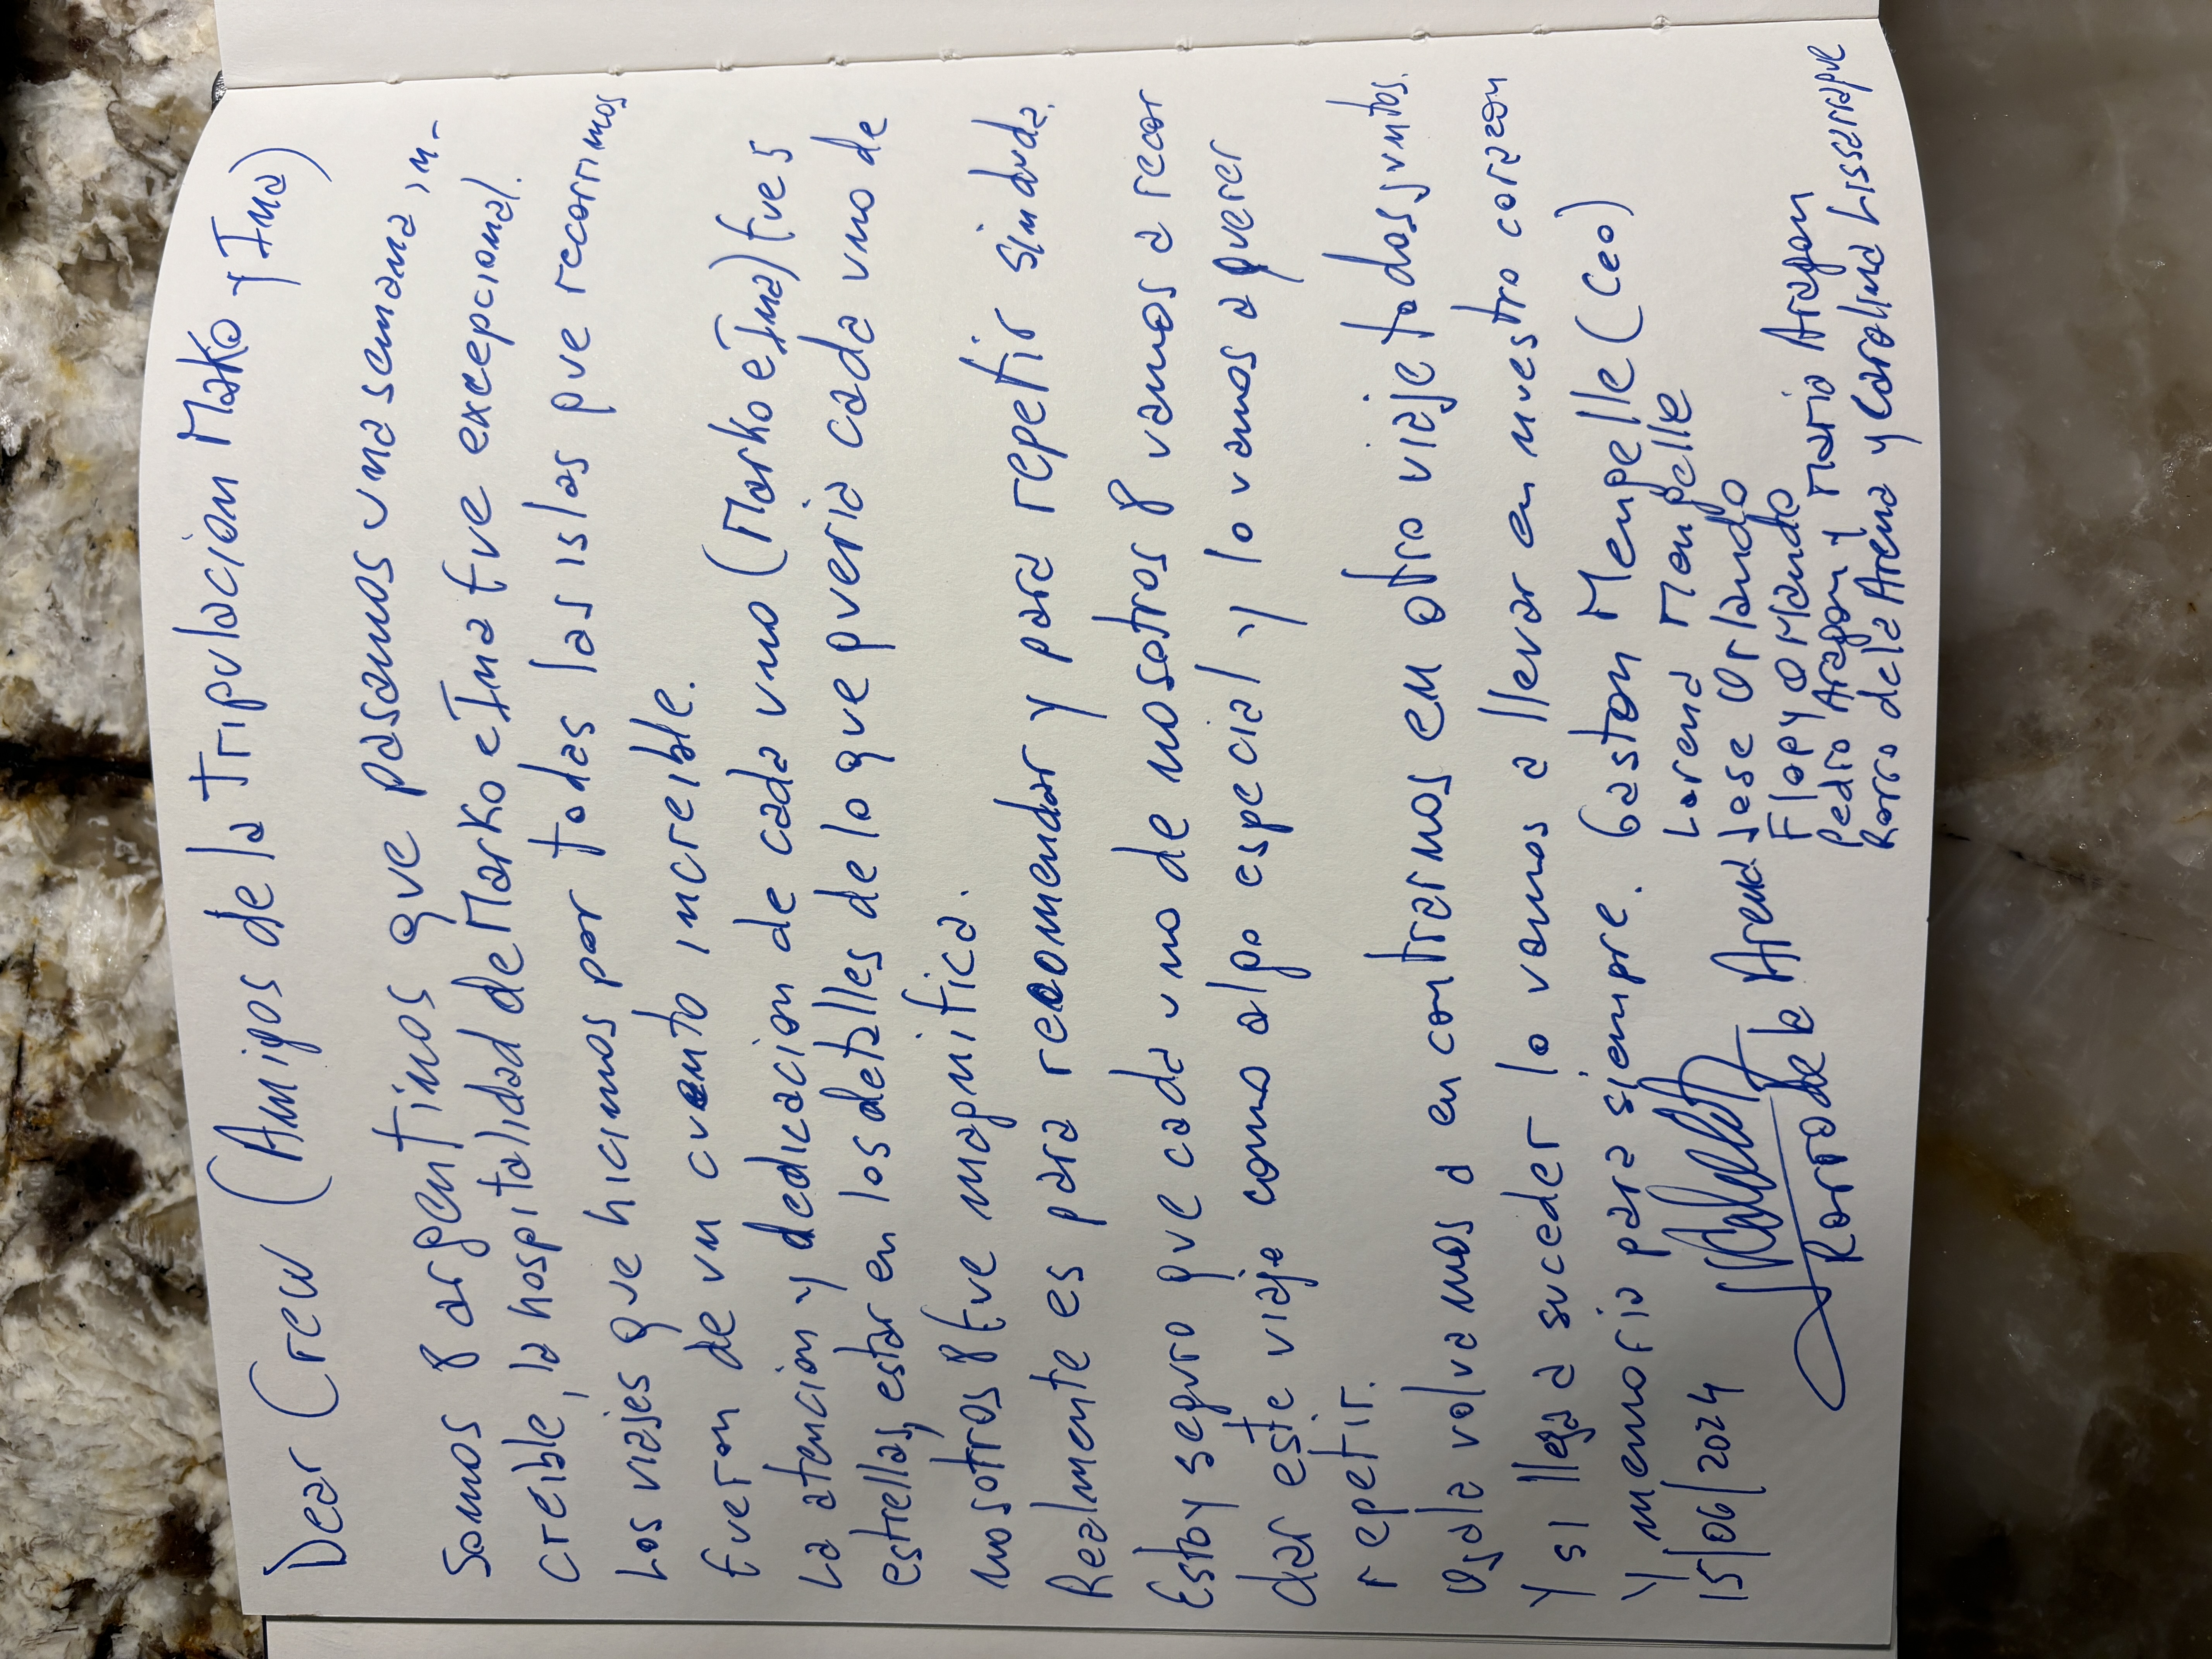 Dear Crew (Amigos de la tripulacion Mako y Ima)
Somos 8 argentinos que pasamos una semana in-
creible, la hospitalidad de Marko e Ima fue excepcional.
Los viajes que hicimos por todas las islas que recorrimos
fueron de un cuento increible.
La atencion y dedicacion de cada uno (Marko e Ima) fue 5
estrellas, estar en los detalles de lo que queria cada uno de
nosotros 8 fue magnifica.
Realmente es para recomendar y para repetir sin duda.
Estoy seguro que cada uno de nosotros 8 vamos a recor
dar este viaje como algo especial y lo vamos a querer
repetir.
Ojala volvamos a encontrarnos en otro viaje todos juntos.
Y si llega a suceder lo vamos a llevar en nuestro corazon
Y memoria para siempre. Gaston Mengelle (Ceo)
Lorena Mengelle
15/06/2024
Jose Orlando
Flopy Orlando
Pedro Aragon y Maria Aragon
Rorro de la Arena
Rorro de la Arena y Carolina Lissarrague